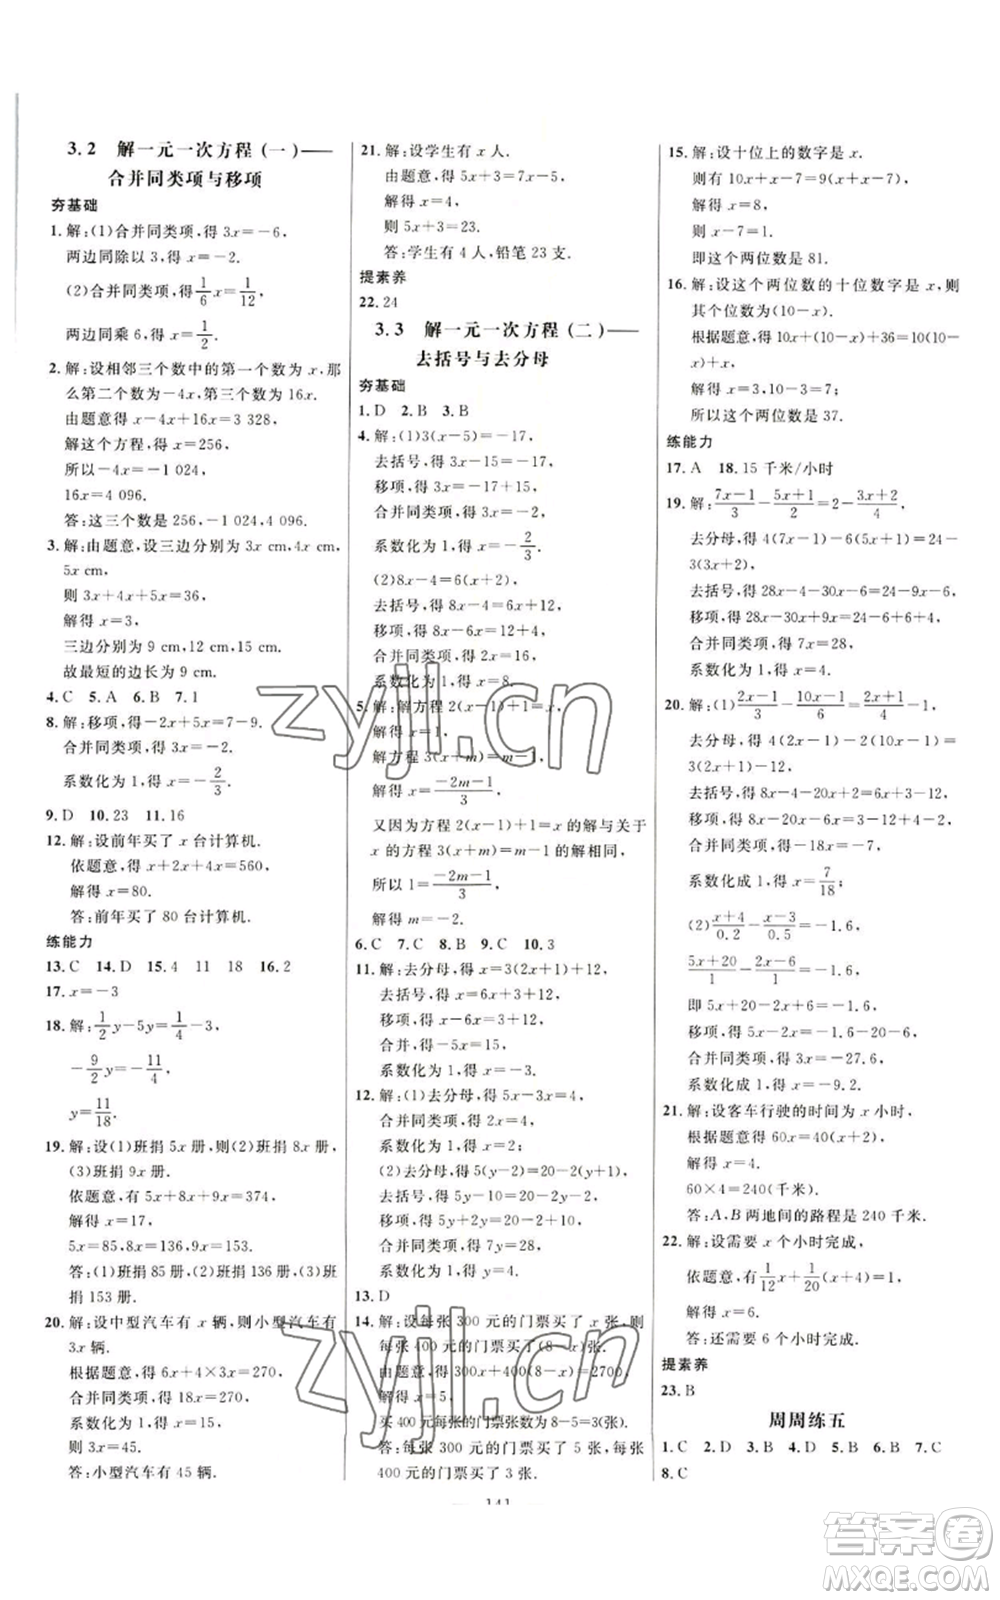 3.2 解一元一次方程(一)——
合并同类项与移项
夯基础
1. 解:(1)合并同类项,得 3x=-6,
两边同除以 3,得 x=-2.
(2)合并同类项,得 1/6 x=1/12,
两边同乘 6,得 x=1/2.
2. 解:设相邻三个数中的第一个数为 x,那
么第二个数为-4x,第三个数为 16x.
由题意得 x-4x+16x=3 328,
解这个方程,得 x=256,
所以-4x=-1 024,
16x=4 096.
答:这三个数是 256,-1 024,4 096.
3. 解:由题意,设三边分别为 3x cm,4x cm,
5x cm,
则 3x+4x+5x=36,
解得 x=3,
三边分别为 9 cm,12 cm,15 cm.
故最短的边长为 9 cm.
4. C 5. A 6. B 7. 1
8. 解:移项,得-2x+5x=7-9.
合并同类项,得 3x=-2,
系数化为 1,得 x=-2/3.
9. D 10. 23 11. 16
12. 解:设前年买了 x 台计算机.
依题意,得 x+2x+4x=560,
解得 x=80.
答:前年买了 80 台计算机.
练能力
13. C 14. D 15. 4 11 18 16. 2
17. x=-3
18. 解:1/2 y-5y=1/4-3,
-9/2 y=-11/4,
y=11/18.
19. 解:设(1)班捐 5x 册,则(2)班捐 8x 册,
(3)班捐 9x 册.
依题意,有 5x+8x+9x=374,
解得 x=17,
5x=85,8x=136,9x=153.
答:(1)班捐 85 册,(2)班捐 136 册,(3)班
捐 153 册.
20. 解:设中型汽车有 x 辆,则小型汽车有
3x 辆.
根据题意,得 6x+4×3x=270,
合并同类项,得 18x=270,
系数化为 1,得 x=15.
则 3x=45.
答:小型汽车有 45 辆.
21. 解:设学生有 x 人.
由题意,得 5x+3=7x-5,
解得 x=4,
则 5x+3=23.
答:学生有 4 人,铅笔 23 支.
提素养
22. 24
3.3 解一元一次方程(二)——
去括号与去分母
夯基础
1. D 2. B 3. B
4. 解:(1)3(x-5)=-17,
去括号,得 3x-15=-17,
移项,得 3x=-17+15,
合并同类项,得 3x=-2,
系数化为 1,得 x=-2/3.
(2)8x-4=6(x+2),
去括号,得 8x-4=6x+12,
移项,得 8x-6x=12+4,
合并同类项,得 2x=16,
系数化为 1,得 x=8.
5. 解:解方程 2(x-1)+1=x,
解得 x=1.
解方程 3(x+m)=m-1,
得 x=(-2m-1)/3.
又因为方程 2(x-1)+1=x 的解与关于
x 的方程 3(x+m)=m-1 的解相同,
所以 1=(-2m-1)/3,
解得 m=-2.
6. C 7. C 8. B 9. C 10. 3
11. 解:去分母,得 x=3(2x+1)+12,
去括号,得 x=6x+3+12,
移项,得 x-6x=3+12,
合并,得-5x=15,
系数化为 1,得 x=-3.
12. 解:(1)去分母,得 5x-3x=4,
合并同类项,得 2x=4,
系数化为 1,得 x=2;
(2)去分母,得 5(y-2)=20-2(y+1),
去括号,得 5y-10=20-2y-2,
移项,得 5y+2y=20-2+10,
合并同类项,得 7y=28,
系数化为 1,得 y=4.
13. D
14. 解:设每张 300 元的门票买了 x 张,则
每张 400 元的门票买了(8-x)张,
由题意,得 300x+400(8-x)=2700,
解得 x=5,
买 400 元每张的门票张数为 8-5=3(张).
答:每张 300 元的门票买了 5 张,每张
400 元的门票买了 3 张.
15. 解:设十位上的数字是 x.
则有 10x+x-7=9(x+x-7),
解得 x=8,
则 x-7=1.
即这个两位数是 81.
16. 解:设这个两位数的十位数字是 x,则
其个位数为(10-x).
根据题意,得 10x+(10-x)+36=10(10-
x)+x,
解得 x=3.
所以这个两位数是 37.
练能力
17. A 18. 15 千米/小时
19. 解:(7x-1)/3-(5x+1)/2=2-(3x+2)/4,
去分母,得 4(7x-1)-6(5x+1)=24-
3(3x+2),
去括号,得 28x-4-30x-6=24-9x-6,
移项,得 28x-30x+9x=24-6+6+4,
合并同类项,得 7x=28,
系数化为 1,得 x=4.
20. 解:(1)(2x-1)/3-(10x-1)/6=(2x+1)/4-1,
去分母,得 4(2x-1)-2(10x-1)=
3(2x+1)-12,
去括号,得 8x-4-20x+2=6x+3-12,
移项,得 8x-20x-6x=3-12+4-2,
合并同类项,得-18x=-7,
系数化成 1,得 x=7/18;
(2)(x+4)/0.2-(x-3)/0.5=-1.6,
(5x+20)/1-(2x-6)/1=-1.6,
即 5x+20-2x+6=-1.6,
移项,得 5x-2x=-1.6-20-6,
合并同类项,得 3x=-27.6,
系数化成 1,得 x=-9.2.
21. 解:设客车行驶的时间为 x 小时,
根据题意,得 60x=40(x+2),
解得 x=4.
60×4=240(千米).
答:A,B 两地间的路程是 240 千米.
22. 解:设需要 x 个小时完成,
依题意,有 1/12 x+1/20(x+4)=1,
解得 x=6.
答:还需要 6 个小时完成.
提素养
23. B
周周练五
1. C 2. D 3. A 4. D 5. B 6. B 7. C
8. C
141
zyjl.cn
zyjl.cn
答案卷
MXQE.COM